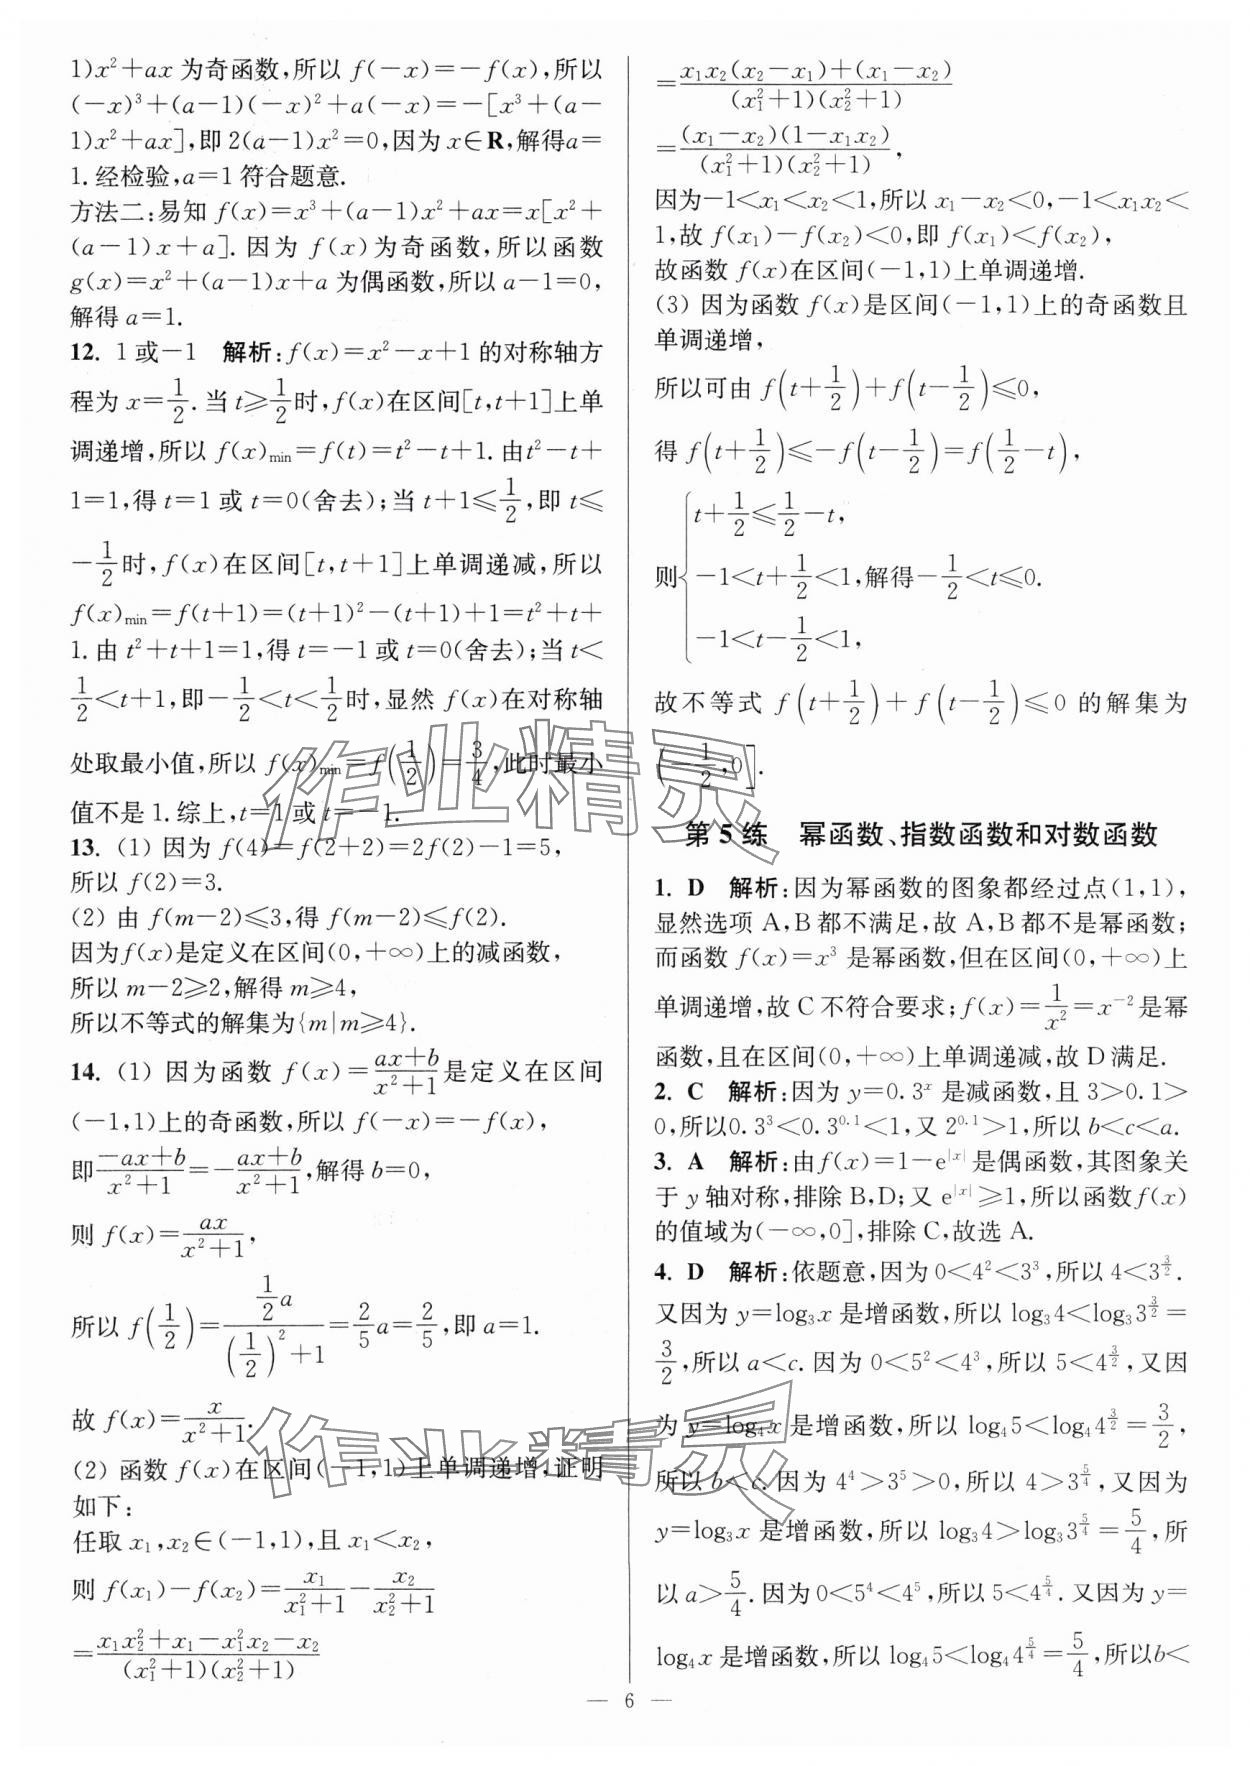 1)x²+ax 为奇函数,所以 f(-x)=-f(x),所以
(-x)³+(a-1)(-x)²+a(-x)=-[x³+(a-
1)x²+ax],即 2(a-1)x²=0,因为 x∈R,解得a=
1.经检验,a=1 符合题意.
方法二:易知 f(x)=x³+(a-1)x²+ax=x[x²+
(a-1)x+a].因为 f(x)为奇函数,所以函数
g(x)=x²+(a-1)x+a 为偶函数,所以 a-1=0,
解得 a=1.
12. 1 或-1 解析:f(x)=x²-x+1 的对称轴方
程为 x=1/2.当 t≥1/2时,f(x)在区间[t,t+1]上单
调递增,所以 f(x)min=f(t)=t²-t+1.由t²-t+
1=1,得 t=1 或 t=0(舍去);当 t+1≤1/2,即 t≤
-1/2时,f(x)在区间[t,t+1]上单调递减,所以
f(x)min=f(t+1)=(t+1)²-(t+1)+1=t²+t+
1.由 t²+t+1=1,得 t=-1 或 t=0(舍去);当 t<
1/2<t+1,即-1/2<t<1/2时,显然 f(x)在对称轴
处取最小值,所以 f(x)min=f(1/2)=3/4,此时最小
值不是 1.综上,t=1 或 t=-1.
13. (1) 因为 f(4)=f(2+2)=2f(2)-1=5,
所以 f(2)=3.
(2) 由 f(m-2)≤3,得 f(m-2)≤f(2).
因为f(x)是定义在区间(0,+∞)上的减函数,
所以 m-2≥2,解得 m≥4,
所以不等式的解集为{m|m≥4}.
14. (1) 因为函数 f(x)=(ax+b)/(x²+1)是定义在区间
(-1,1)上的奇函数,所以 f(-x)=-f(x),
即(-ax+b)/(x²+1)=-(ax+b)/(x²+1),解得 b=0,
则 f(x)=ax/(x²+1),
所以 f(1/2)=(1/2 a)/((1/2)²+1)=2/5 a=2/5,即 a=1.
故 f(x)=x/(x²+1).
(2) 函数 f(x)在区间(-1,1)上单调递增,证明
如下:
任取 x₁,x₂∈(-1,1),且 x₁<x₂,
则 f(x₁)-f(x₂)=x₁/(x₁²+1)-x₂/(x₂²+1)
=(x₁x₂²+x₁-x₁²x₂-x₂)/((x₁²+1)(x₂²+1))
=(x₁x₂(x₂-x₁)+(x₁-x₂))/((x₁²+1)(x₂²+1))
=((x₁-x₂)(1-x₁x₂))/((x₁²+1)(x₂²+1)),
因为-1<x₁<x₂<1,所以 x₁-x₂<0,-1<x₁x₂<
1,故 f(x₁)-f(x₂)<0,即 f(x₁)<f(x₂),
故函数 f(x)在区间(-1,1)上单调递增.
(3) 因为函数 f(x)是区间(-1,1)上的奇函数且
单调递增,
所以可由 f(t+1/2)+f(t-1/2)≤0,
得 f(t+1/2)≤-f(t-1/2)=f(1/2-t),
t+1/2≤1/2-t,
则{-1<t+1/2<1,解得-1/2<t≤0.
-1<t-1/2<1,
故不等式 f(t+1/2)+f(t-1/2)≤0 的解集为
(-1/2,0].
第 5 练 幂函数、指数函数和对数函数
1. D 解析:因为幂函数的图象都经过点(1,1),
显然选项 A,B 都不满足,故 A,B 都不是幂函数;
而函数 f(x)=x³ 是幂函数,但在区间(0,+∞)上
单调递增,故 C 不符合要求;f(x)=1/x²=x⁻²是幂
函数,且在区间(0,+∞)上单调递减,故 D 满足.
2. C 解析:因为 y=0.3ˣ 是减函数,且 3>0.1>
0,所以0.3³<0.3^0.1<1,又 2^0.1>1,所以 b<c<a.
3. A 解析:由f(x)=1-e^|x| 是偶函数,其图象关
于 y 轴对称,排除 B,D;又 e^|x|≥1,所以函数f(x)
的值域为(-∞,0],排除 C,故选 A.
4. D 解析:依题意,因为 0<4²<3³,所以 4<3^(3/2).
又因为 y=log₃x 是增函数,所以 log₃4<log₃3^(3/2)=
3/2,所以 a<c.因为 0<5²<4³,所以 5<4^(3/2),又因
为 y=log₄x 是增函数,所以 log₄5<log₄4^(3/2)=3/2,
所以 b<c.因为 4⁴>3⁵>0,所以 4>3^(5/4),又因为
y=log₃x 是增函数,所以 log₃4>log₃3^(5/4)=5/4,所
以 a>5/4.因为 0<5⁴<4⁵,所以 5<4^(5/4).又因为 y=
log₄x 是增函数,所以 log₄5<log₄4^(5/4)=5/4,所以b<
— 6 —
作业精灵
作业精灵